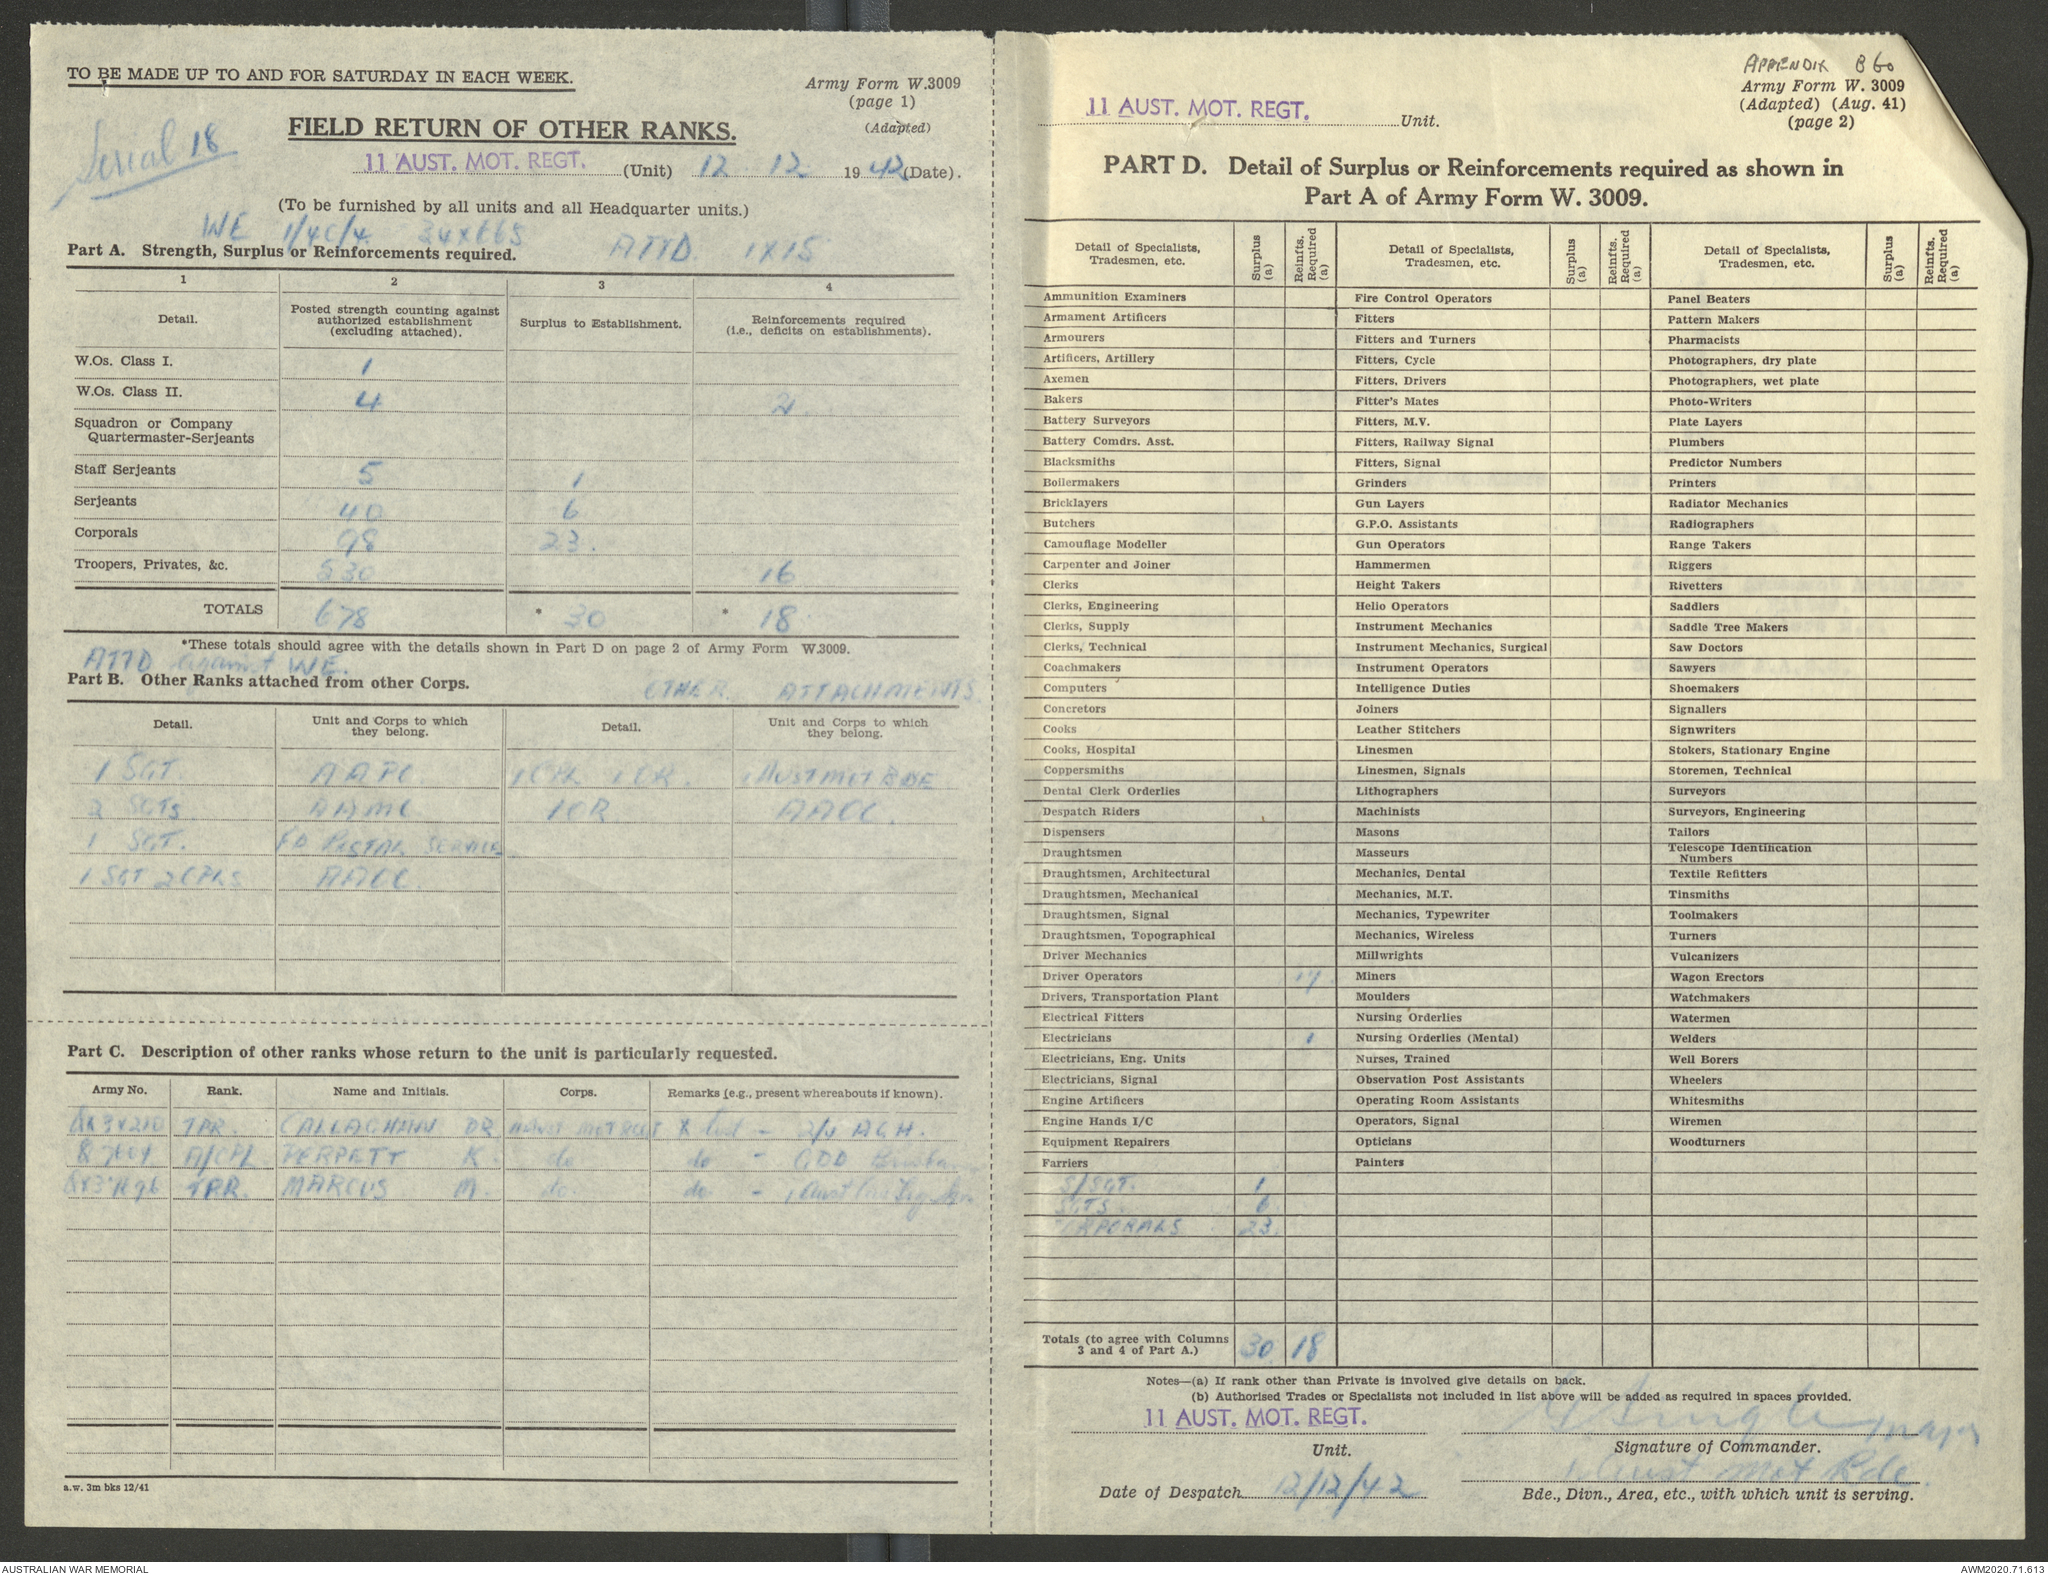 TO BE MADE UP TO AND FOR SATURDAY IN EACH WEEK.
Army Form W.3009
(page 1)
(Adapted)
Serial 18
FIELD RETURN OF OTHER RANKS.
11 AUST. MOT. REGT. (Unit) 12 . 12 . 1942 (Date).
(To be furnished by all units and all Headquarter units.)
WE 1/4C/4 34 x 665 ATTD. 1 x 15
Part A. Strength, Surplus or Reinforcements required.
1 2 3 4
Detail. Posted strength counting against authorized establishment (excluding attached). Surplus to Establishment. Reinforcements required (i.e., deficits on establishments).
W.Os. Class I. 1
W.Os. Class II. 4 2
Squadron or Company
Quartermaster-Serjeants
Staff Serjeants 5 1
Serjeants 40 6
Corporals 98 23.
Troopers, Privates, &c. 530 16
TOTALS 678 * 30 * 18
*These totals should agree with the details shown in Part D on page 2 of Army Form W.3009.
ATTD against WE.
Part B. Other Ranks attached from other Corps. OTHER ATTACHMENTS
Detail. Unit and Corps to which they belong. Detail. Unit and Corps to which they belong.
1 SGT. AAPC 1 CPL 1 OR. 1 AUST MOT BDE
2 SGTS AAMC 1 OR AAOC.
1 SGT. FD POSTAL SERVICE
1 SGT 2 CPLS AAOC
Part C. Description of other ranks whose return to the unit is particularly requested.
Army No. Rank. Name and Initials. Corps. Remarks (e.g., present whereabouts if known).
TPR. CALLAGHAN DR MOT REGT X list - AGH.
A/CPL PERPETT K. do do - GDD
TPR. MARCUS M. do. do -
a.w. 3m bks 12/41
APPENDIX B60
Army Form W. 3009
(Adapted) (Aug. 41)
(page 2)
11 AUST. MOT. REGT. Unit.
PART D. Detail of Surplus or Reinforcements required as shown in
Part A of Army Form W. 3009.
Detail of Specialists, Tradesmen, etc. Surplus (a) Reinfts. Required (a) Detail of Specialists, Tradesmen, etc. Surplus (a) Reinfts. Required (a) Detail of Specialists, Tradesmen, etc. Surplus (a) Reinfts. Required (a)
Ammunition Examiners Fire Control Operators Panel Beaters
Armament Artificers Fitters Pattern Makers
Armourers Fitters and Turners Pharmacists
Artificers, Artillery Fitters, Cycle Photographers, dry plate
Axemen Fitters, Drivers Photographers, wet plate
Bakers Fitter's Mates Photo-Writers
Battery Surveyors Fitters, M.V. Plate Layers
Battery Comdrs. Asst. Fitters, Railway Signal Plumbers
Blacksmiths Fitters, Signal Predictor Numbers
Boilermakers Grinders Printers
Bricklayers Gun Layers Radiator Mechanics
Butchers G.P.O. Assistants Radiographers
Camouflage Modeller Gun Operators Range Takers
Carpenter and Joiner Hammermen Riggers
Clerks Height Takers Rivetters
Clerks, Engineering Helio Operators Saddlers
Clerks, Supply Instrument Mechanics Saddle Tree Makers
Clerks, Technical Instrument Mechanics, Surgical Saw Doctors
Coachmakers Instrument Operators Sawyers
Computers Intelligence Duties Shoemakers
Concretors Joiners Signallers
Cooks Leather Stitchers Signwriters
Cooks, Hospital Linesmen Stokers, Stationary Engine
Coppersmiths Linesmen, Signals Storemen, Technical
Dental Clerk Orderlies Lithographers Surveyors
Despatch Riders Machinists Surveyors, Engineering
Dispensers Masons Tailors
Draughtsmen Masseurs Telescope Identification Numbers
Draughtsmen, Architectural Mechanics, Dental Textile Refitters
Draughtsmen, Mechanical Mechanics, M.T. Tinsmiths
Draughtsmen, Signal Mechanics, Typewriter Toolmakers
Draughtsmen, Topographical Mechanics, Wireless Turners
Driver Mechanics Millwrights Vulcanizers
Driver Operators 17 Miners Wagon Erectors
Drivers, Transportation Plant Moulders Watchmakers
Electrical Fitters Nursing Orderlies Watermen
Electricians 1 Nursing Orderlies (Mental) Welders
Electricians, Eng. Units Nurses, Trained Well Borers
Electricians, Signal Observation Post Assistants Wheelers
Engine Artificers Operating Room Assistants Whitesmiths
Engine Hands I/C Operators, Signal Wiremen
Equipment Repairers Opticians Woodturners
Farriers Painters
S/SGT. 1
SGTS 6
CORPORALS 23.
Totals (to agree with Columns 3 and 4 of Part A.) 30 18
Notes—(a) If rank other than Private is involved give details on back.
(b) Authorised Trades or Specialists not included in list above will be added as required in spaces provided.
11 AUST. MOT. REGT.
Unit.
Major
Signature of Commander.
1 Aust Mot Bde.
Date of Despatch 12/12/42
Bde., Divn., Area, etc., with which unit is serving.
AUSTRALIAN WAR MEMORIAL
AWM2020.71.613